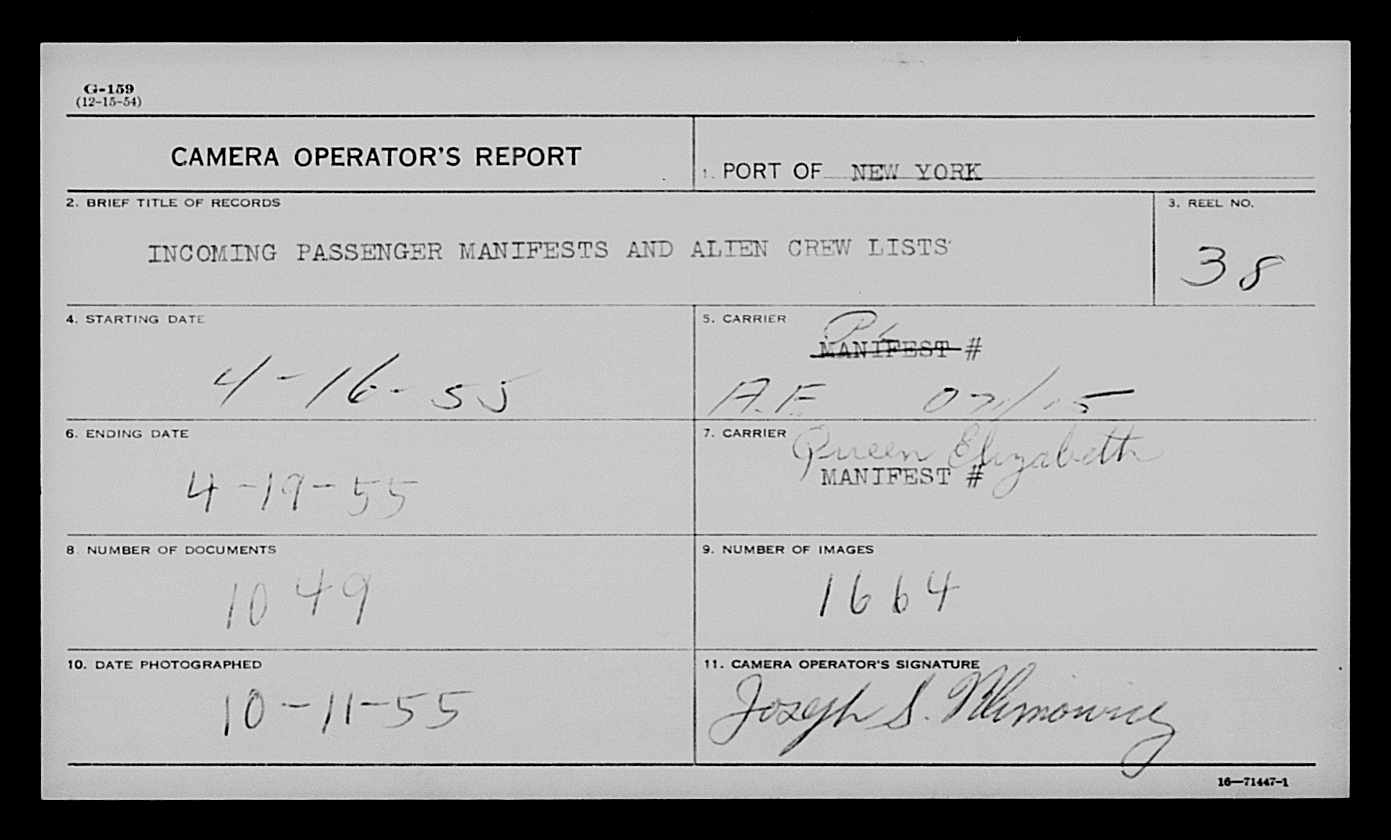 G-159
(12-15-54)
CAMERA OPERATOR'S REPORT
1. PORT OF NEW YORK
2. BRIEF TITLE OF RECORDS
INCOMING PASSENGER MANIFESTS AND ALIEN CREW LISTS
3. REEL NO.
38
4. STARTING DATE
4-16-55
5. CARRIER
MANIFEST #
A.F. 071/15
6. ENDING DATE
4-19-55
7. CARRIER
Queen Elizabeth
MANIFEST #
8 NUMBER OF DOCUMENTS
1049
9. NUMBER OF IMAGES
1664
10. DATE PHOTOGRAPHED
10-11-55
11. CAMERA OPERATOR'S SIGNATURE
Joseph S.
16—71447-1